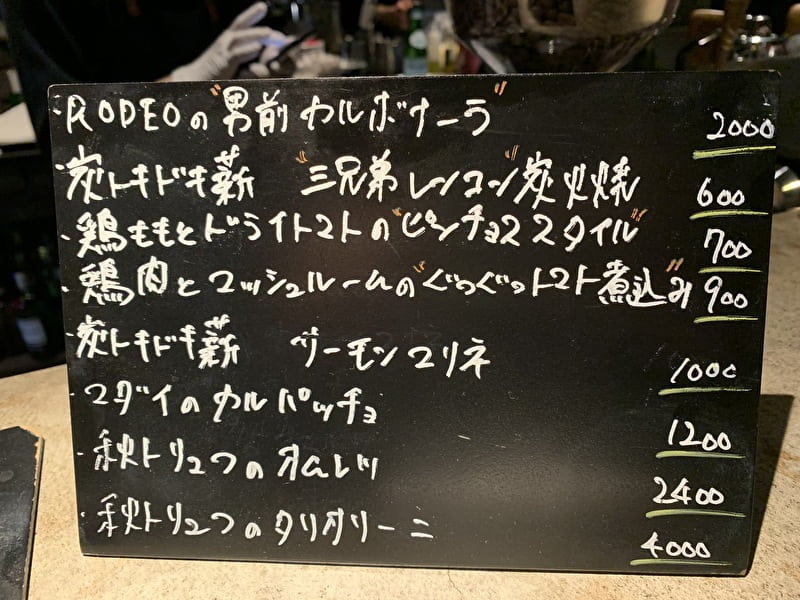 ・RODEOの"男前カルボナーラ" 2000
炭トキドキ薪 "三兄弟レンコン"炭火焼 600
・鶏ももとドライトマトの"ピンチョススタイル" 700
・鶏肉とマッシュルームの"ぐつぐつトマト煮込"み 900
・炭トキドキ薪 サーモンマリネ 1000
・マダイのカルパッチョ 1200
・秋トリュフのオムレツ 2400
・秋トリュフのタリオリーニ 4000